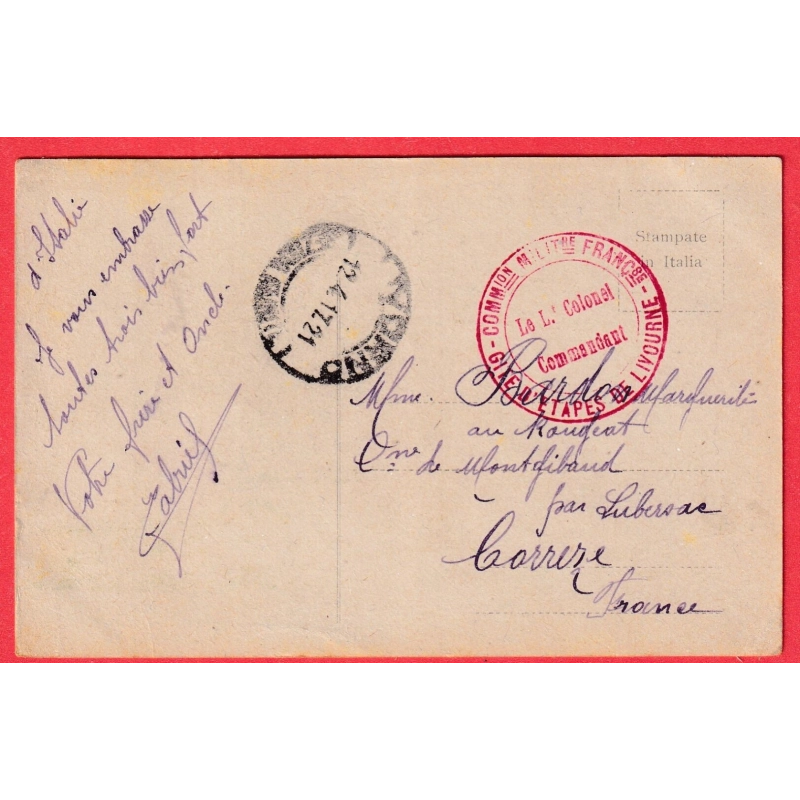 d'Italie
Je vous embrasse
toutes trois bien fort
Votre frère et Oncle.
Gabriel
LIVORNO
12.4.17.21
COMMION MILITRE FRANÇSE
GITE D'ETAPES DE LIVOURNE
Le Lt Colonel
Commandant
Stampate
in Italia
Mme. Bardon Marguerite
au Rougeat
Cne de Montgibaud
par Lubersac
Correze
France